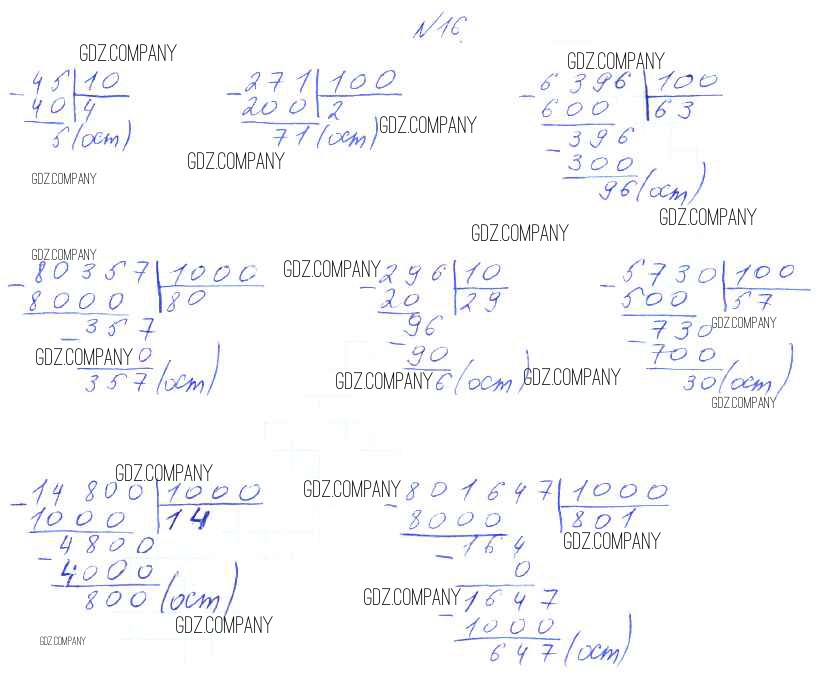 N16.
GDZ.COMPANY GDZ.COMPANY
-45|10 -271|100 -6396|100
40|4 200|2 600|63
5(ост) 71(ост) GDZ.COMPANY -396
GDZ.COMPANY 300
GDZ.COMPANY 96(ост)
GDZ.COMPANY
GDZ.COMPANY
GDZ.COMPANY
-80357|1000 GDZ.COMPANY -296|10 -5730|100
8000|80 20|29 500|57
-357 96 730 GDZ.COMPANY
GDZ.COMPANY 0 -90 -700
357(ост) GDZ.COMPANY 6(ост) GDZ.COMPANY 30(ост)
GDZ.COMPANY
GDZ.COMPANY
-14800|1000 GDZ.COMPANY -801647|1000
1000|14 8000|801
4800 -164 GDZ.COMPANY
-4000 0
800(ост) GDZ.COMPANY 1647
GDZ.COMPANY -1000
GDZ.COMPANY 647(ост)